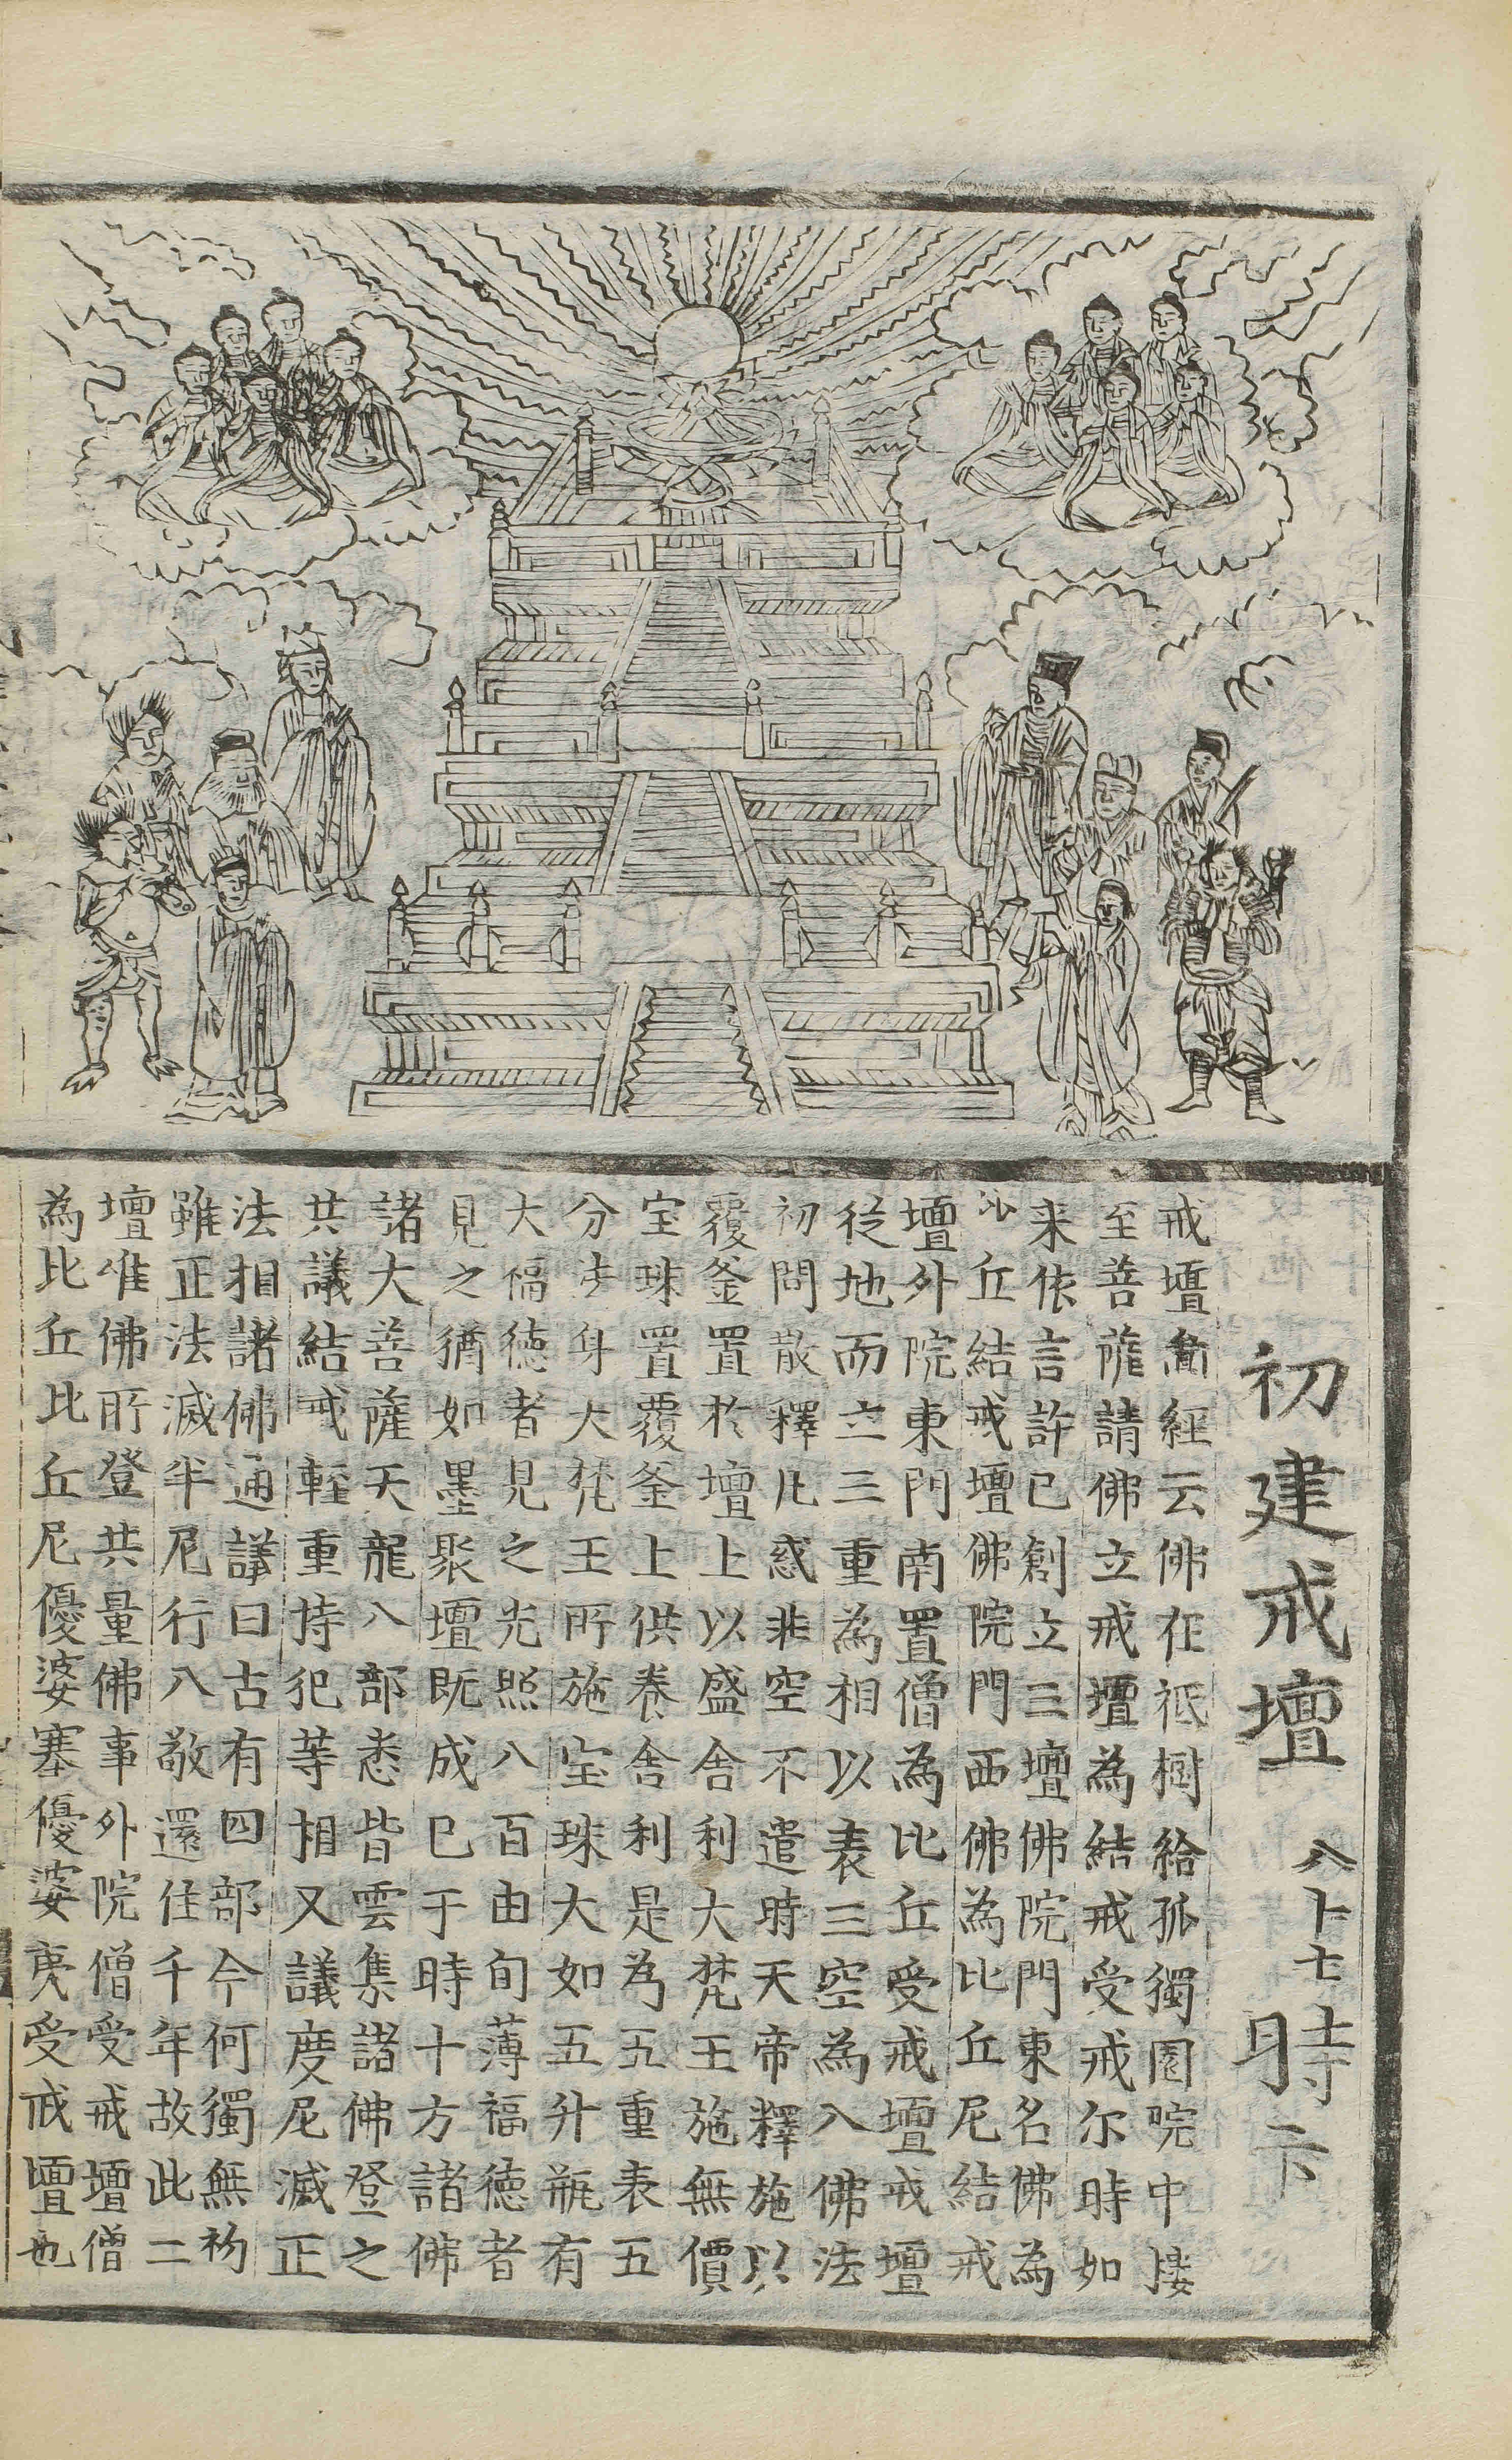 初建戒壇
戒壇啚經云佛在祇樹給孤獨園院中
至菩薩請佛立戒壇為結戒受戒尔時如
来依言許已創立三壇佛院門東名佛為
丘結戒壇佛院門西佛為比丘尼結戒
壇外院東門南置僧為比丘受戒壇戒壇
従地而立三重為相以表三空為入佛法
初問散釋凡惑非空不遣時天帝釋施以
覆釜置於壇上以盛舍利大梵王施無價
宝珠置覆釜上供養舍利是為五重表五
分法身大梵王所施宝珠大如五升瓶有
大福徳者見之光照八百由旬薄福徳者
見之猶如墨聚壇既成已于時十方諸佛
諸大菩薩天龍八部悉皆雲集諸佛登之
共議結戒輕重持犯等相又議度尼滅正
法相諸佛通議曰古有四部今何獨無初
雖正法滅半尼行八敬還住千年故此二
壇唯佛所登共量佛事外院僧受戒壇僧
為比丘比丘尼優婆塞優婆夷受戒壇也